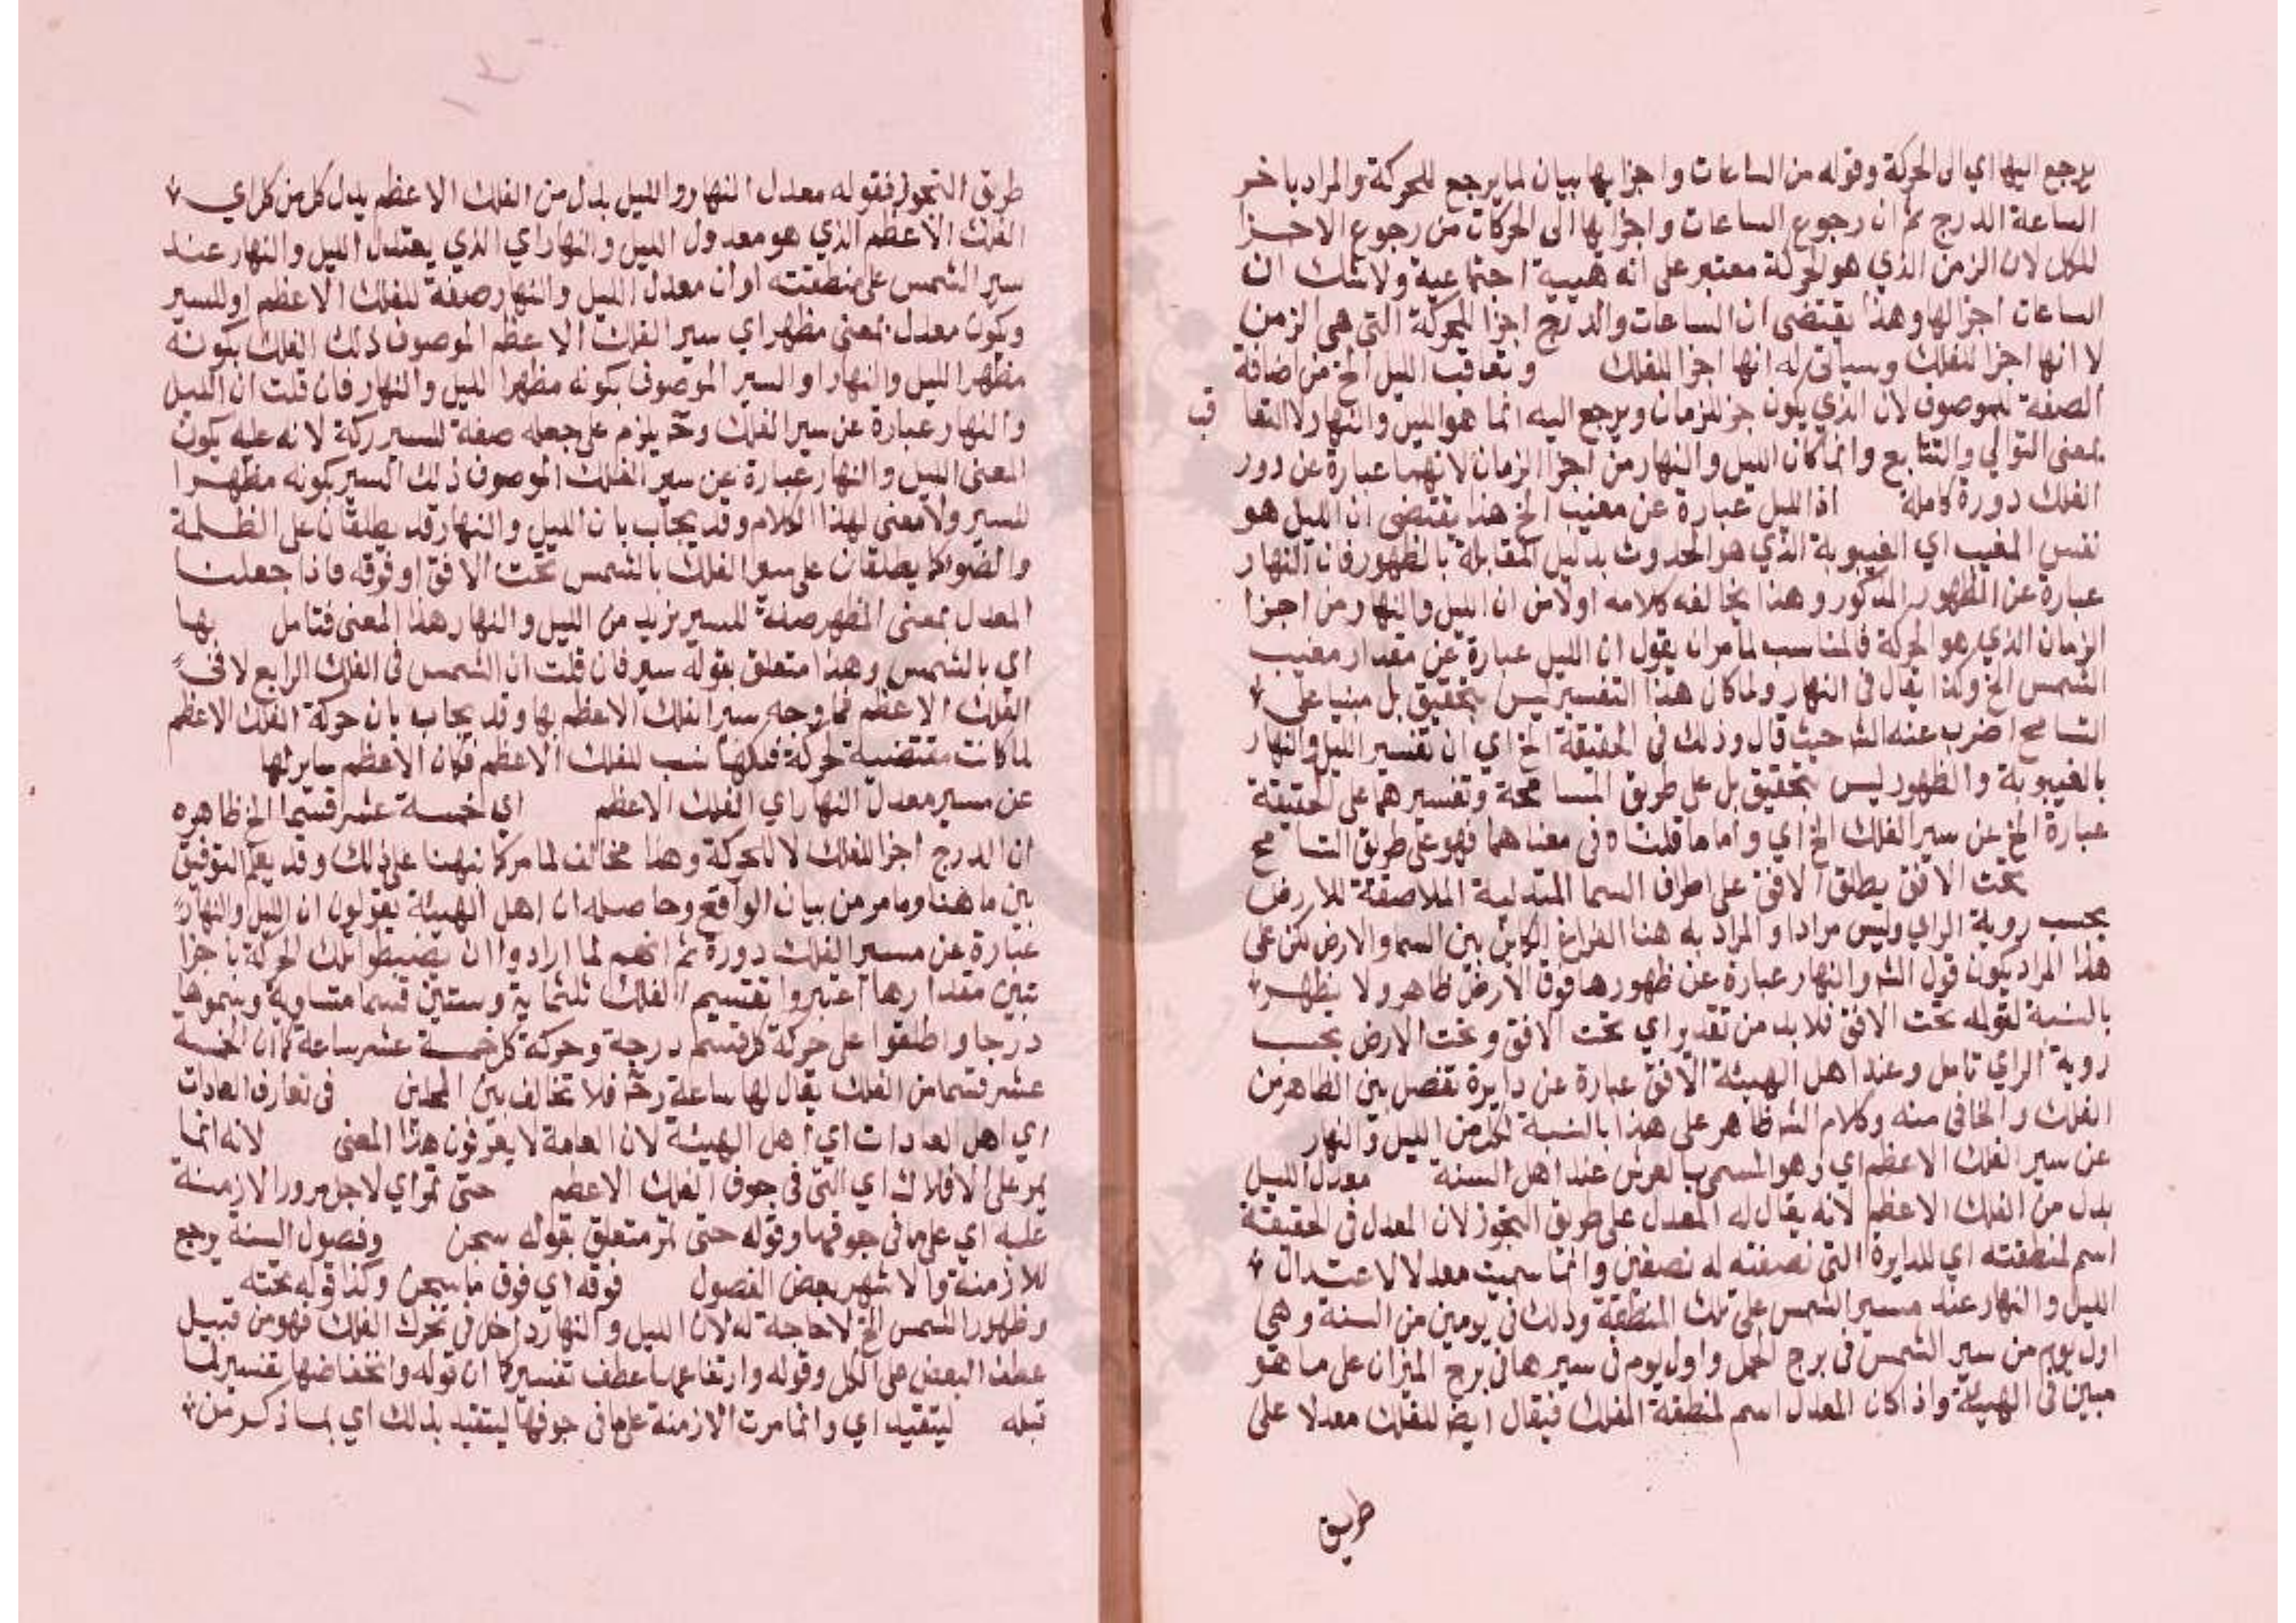 يرجع اليها اي الى الحركة وقوله من الساعات واجزايها بيان لما يرجع للحركة والمراد باخر
الساعة الدرج ثم ان رجوع الساعات واجزايها الى الحركات من رجوع الاجزا
للكل لان الزمن الذي هو الحركة معتبر على انه هيية اجتماعية ولا شك ان
الساعات اجزا لها وهذا يقتضي ان الساعات والدرج اجزا للحركة التي هي الزمن
لا انها اجزا للفلك وسياتي له انها اجزا للفلك وتعاقب الليل الخ من اضافة
الصفة للموصوف لان الذي يكون جز للزمان ويرجع اليه انما هو الليل والنهار لا التعا قب
بمعنى التوالي والتتابع وانما كان الليل والنهار من اجزا الزمان لانهما عبارة عن دور
الفلك دورة كاملة اذ الليل عبارة عن مغيب الخ هذا يقتضي ان الليل هو
نفس المغيب اي الغيبوبة الذي هو الحدوث بدليل المقابلة بالظهور فان النهار
عبارة عن الظهور المذكور وهذا يخالفه كلامه اولا من ان الليل والنهار من اجزا
الزمان الذي هو الحركة فالمناسب لما مر ان يقول ان الليل عبارة عن مقدار مغيب
الشمس الخ وكذا يقال في النهار ولما كان هذا التفسير ليس بتحقيق بل مبنيا على
التسامح اضرب عنه الشه حيث قال وذلك في الحقيقة الخ اي ان تفسير الليل والنهار
بالغيبوبة والظهور ليس بتحقيق بل على طريق المسامحة وتفسيرهما على الحقيقة
عبارة الخ عن سير الفلك الخ اي واما ما قلناه في معناهما فهو على طريق التسامح
تحت الافق يطلق الافق على اطراف السما المتدلية الملاصقة للارض
بحسب روية الراي وليس مرادا والمراد به هنا الفراغ الكاين بين السما والارض لكن على
هذا المراد يكون قول الشه والنهار عبارة عن ظهورها فوق الارض ظاهر ولا يظهر
بالنسبة لقوله تحت الافق فلا بد من تقدير اي تحت الافق وتحت الارض بحسب
روية الراي تامل وعند اهل الهيئة الافق عبارة عن دايرة تفصل بين الظاهر من
الفلك والخافي منه وكلام الشه ظاهر على هذا بالنسبة لكل من الليل والنهار
عن سير الفلك الاعظم اي وهو المسمى بالعرش عند اهل السنة معدل الليل
بدل من الفلك الاعظم لانه يقال له المعدل على طريق التجوز لان المعدل في الحقيقة
اسم لمنطقته اي للدايرة التي نصفته له نصفين وانما سميت معدلا لاعتدال
الليل والنهار عند مسير الشمس على تلك المنطقة وذلك في يومين من السنة وهي
اول يوم من سير الشمس في برج الحمل واول يوم في سيرها في برج الميزان على ما هو
مبين في الهيئة واذا كان المعدل اسم لمنطقة الفلك فيقال ايضا للفلك معدلا على
طريق
طريق التجوز فقوله معدل النهار والليل بدل من الفلك الاعظم بدل كل من كل اي
الفلك الاعظم الذي هو معدول الليل والنهار اي الذي يعتدل الليل والنهار عند
سير الشمس على منطقته او ان معدل الليل والنهار صفة للفلك الاعظم او للسير
وكون معدل بمعنى مظهر اي سير الفلك الاعظم الموصوف ذلك الفلك بكونه
مظهرا لليل والنهار او السير الموصوف بكونه مظهرا لليل والنهار فان قلت ان الليل
والنهار عبارة عن سير الفلك وحـ يلزم على جعله صفة للسير ركة لانه عليه يكون
المعنى الليل والنهار عبارة عن سير الفلك الموصوف ذلك السير بكونه مظهرا
للسير ولا معنى لهذا الكلام وقد يجاب بان الليل والنهار قد يطلقان على الظلمة
والضو كما يطلقان على سير الفلك بالشمس تحت الافق او فوقه فاذا جعلنا
المعدل بمعنى المظهر صفة للسير نريد من الليل والنهار هذا المعنى فتامل بها
اي بالشمس وهذا متعلق بقوله سير فان قلت ان الشمس في الفلك الرابع لا في
الفلك الاعظم فما وجه سير الفلك الاعظم بها وقد يجاب بان حركة الفلك الاعظم
لما كانت مقتضية لحركة فلكها نسب للفلك الاعظم فكان الاعظم ساير بها
عن مسير معدل النهار اي الفلك الاعظم اي خمسة عشر قسما الخ ظاهره
ان الدرج اجزا للفلك لا للحركة وهذا مخالف لما مر كما نبهنا على ذلك وقد يقع التوفيق
بين ما هنا وما مر من بيان الواقع وحاصله ان اهل الهيئة يقولون ان الليل والنهار
عبارة عن مسير الفلك دورة ثم انهم لما ارادوا ان يضبطوا تلك الحركة باجزا
تبين مقدارها اعتبروا تقسيم الفلك ثلثماية وستين قسما متساوية وسموها
درجا واطلقوا على حركة كل قسم درجة وحركة كل خمسة عشر ساعة كما ان الخمسة
عشر قسما من الفلك يقال لها ساعة وحـ فلا تخالف بين المحلين في تعارف العادات
اي اهل العادات اي اهل الهيئة لان العامة لا يعرفون هذا المعنى لانه انما
يمر على الافلاك اي التي في جوف الفلك الاعظم حتى تمر اي لاجل مرور الازمنة
عليه اي على ما في جوفها وقوله حتى تمر متعلق بقوله سجن وفصول السنة يرجع
للازمنة والاشهر بعض الفصول فوقه اي فوق ما سجن وكذا قوله تحته
وظهور الشمس الخ لا حاجة له لان الليل والنهار داخل في تحرك الفلك فهو من قبيل
عطف البعض على الكل وقوله وارتفاعها عطف تفسير كما ان قوله وانخفاضها تفسير لما
قبله ليتقيد اي وانما مرت الازمنة على ما في جوفها ليتقيد بذلك اي بما ذكر من